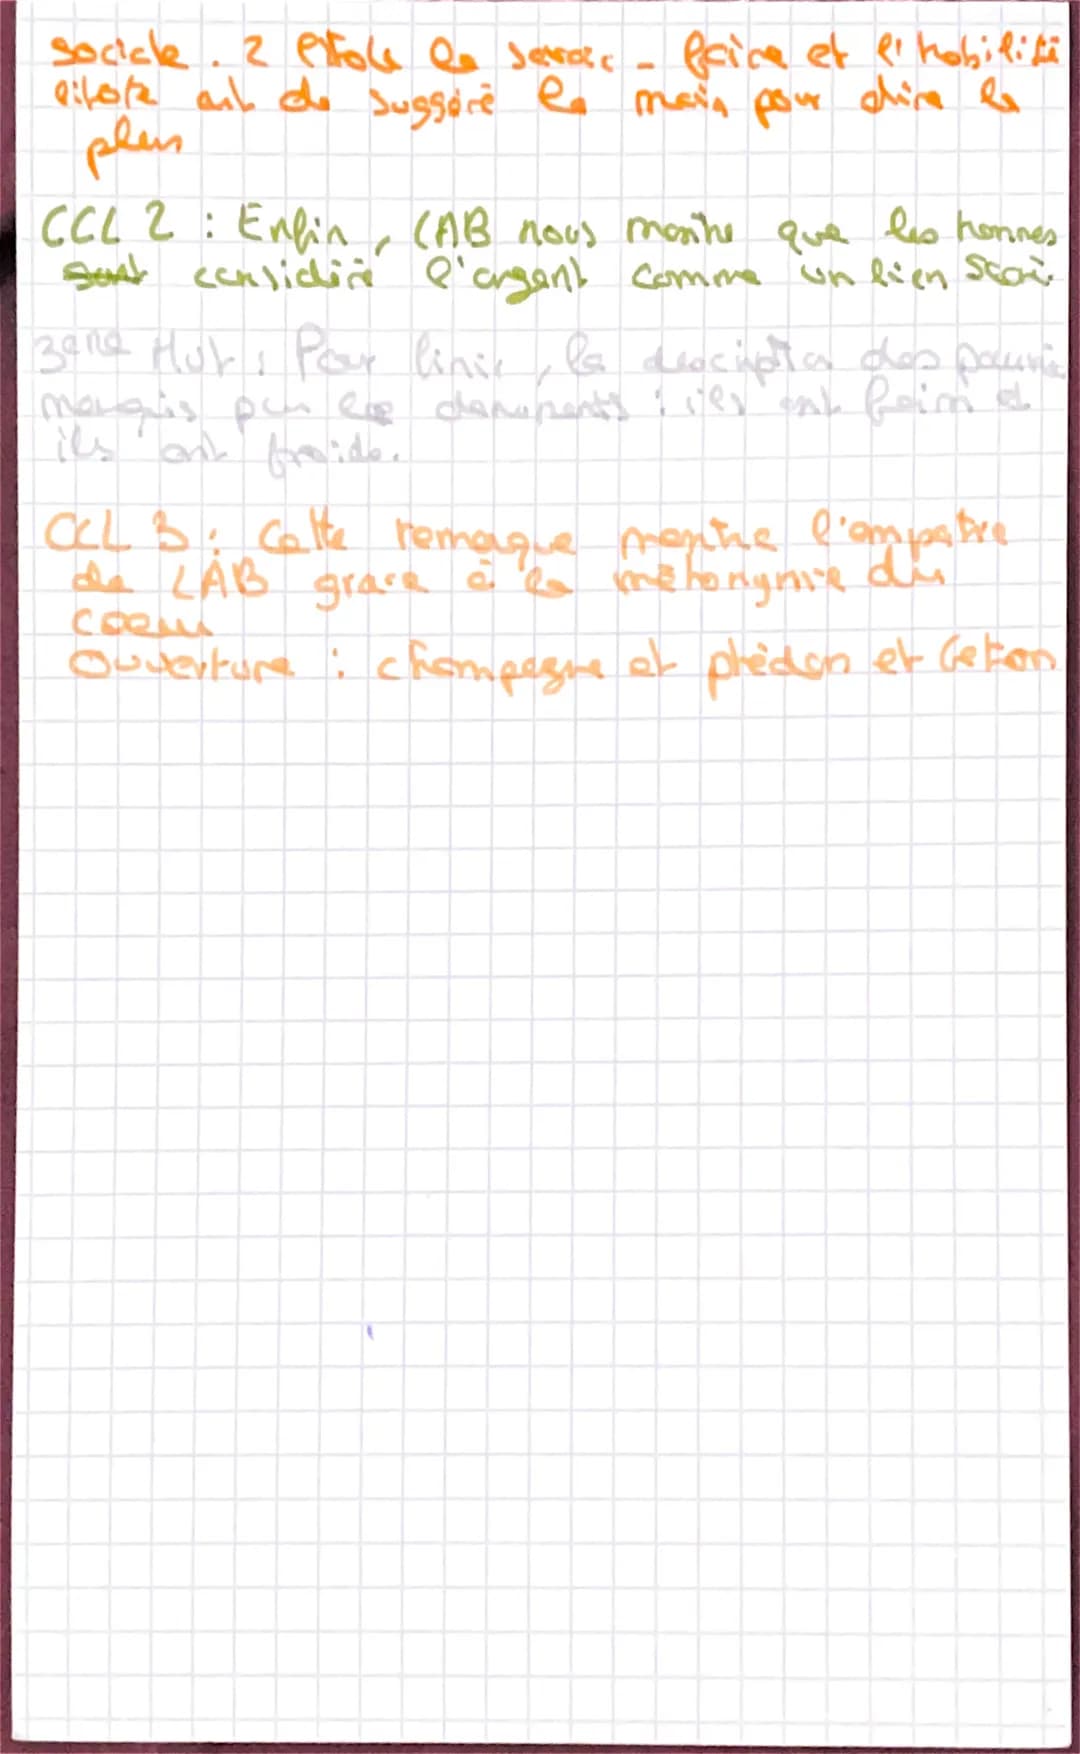 sociale. 2 étole le savoir - faire et l'habilité
ont de suggéré le main pour dire le
plus
CCL 2 : Enfin, LAB nous montre que les hommes
sont considéré l'argent comme un lien
3ème Mvt : Pour finir, la description des pauvre
marquis par les : ils ont faim et
ils ont froide.
CCL 3 : Cette remarque montre l'empatie
de LAB grace à la métonymie du
coeur
Ouverture : champagne et phédon et Geton